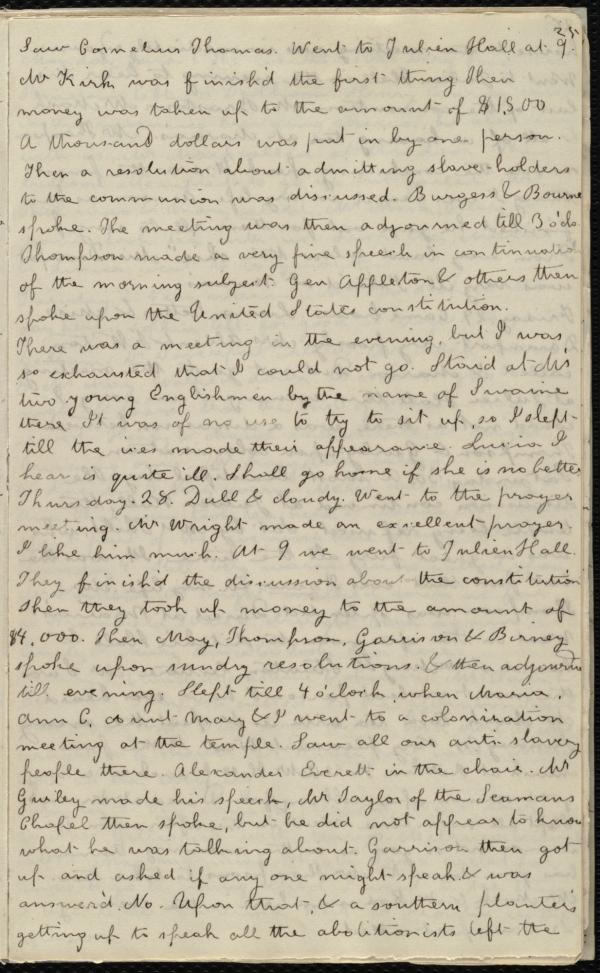 25
Saw Cornelius Thomas. Went to Julien Hall at 9.
Mr Kirk was finish'd the first thing Then
money was taken up to the amount of $1,500
A thousand dollars was put in by one person.
Then a resolution about admitting slave-holders
to the communion was discussed. Burgess & Bourne
spoke. The meeting was then adjourned till 3 o'clo
Thompson made a very fine speech in continuatio
of the morning subject. Gen Appleton & others then
spoke upon the United States constitution.
There was a meeting in the evening, but I was
so exhausted that I could not go. Staid at Mrs
two young Englishmen by the name of Swaine
there It was of no use to try to sit up, so I slept
till the ices made their appearance. Lucia I
hear is quite ill. Shall go home if she is no better
Thursday. 28. Dull & cloudy. Went to the prayer
meeting. Mr Wright made an excellent prayer.
I like him much. At 9 we went to Julien Hall.
They finish'd the discussion about the constitution
Then they took up money to the amount of
$4,000. Then May, Thompson, Garrison & Birney
spoke upon sundry resolutions. & then adjourn'd
till evening. Slept till 4 o'clock, when Maria,
Ann C, Aunt Mary & I went to a colonization
meeting at the temple. Saw all our anti-slavery
people there. Alexander Everett in the chair. Mr
Gurley made his speech, Mr Taylor of the Seamans
Chapel then spoke, but he did not appear to know
what he was talking about. Garrison then got
up and asked if any one might speak & was
answer'd. No. Upon that, & a southern planter's
getting up to speak all the abolitionists left the